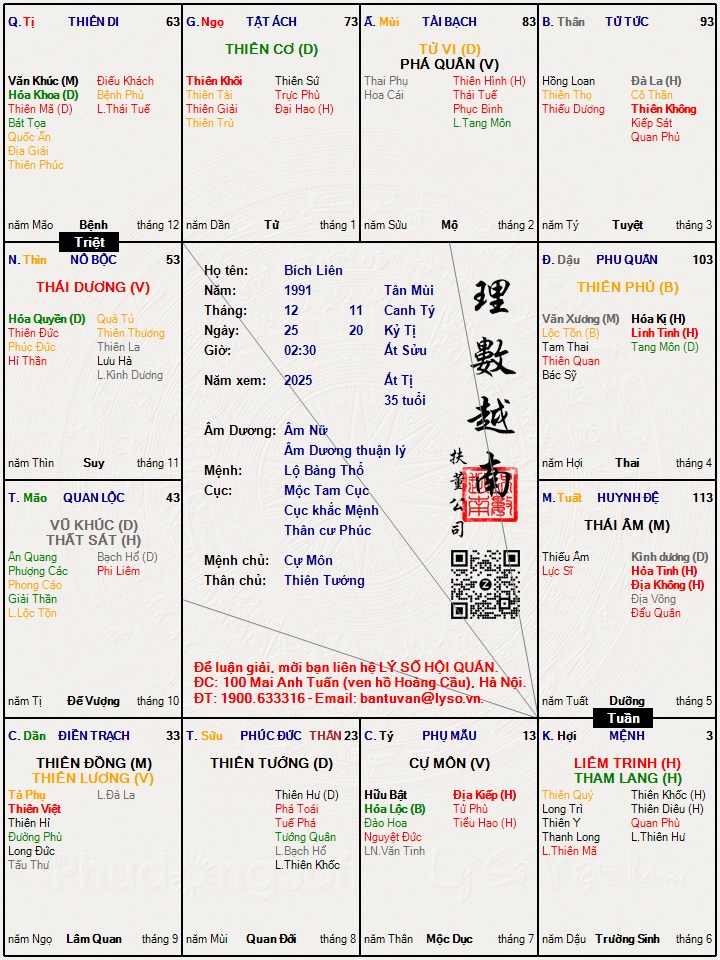 Q. Tị THIÊN DI 63
Văn Khúc (M) Điếu Khách
Hóa Khoa (D) Bệnh Phù
Thiên Mã (D) L.Thái Tuế
Bát Tọa
Quốc Ấn
Địa Giải
Thiên Phúc
năm Mão Bệnh tháng 12
G. Ngọ TẬT ÁCH 73
THIÊN CƠ (D)
Thiên Khôi Thiên Sứ
Thiên Tài Trực Phù
Thiên Giải Đại Hao (H)
Thiên Trù
năm Dần Tử tháng 1
Ấ. Mùi TÀI BẠCH 83
TỬ VI (D)
PHÁ QUÂN (V)
Thai Phụ Thiên Hình (H)
Hoa Cái Thái Tuế
Phục Binh
L.Tang Môn
năm Sửu Mộ tháng 2
B. Thân TỬ TỨC 93
Hồng Loan Đà La (H)
Thiên Thọ Cô Thần
Thiếu Dương Thiên Không
Kiếp Sát
Quan Phủ
năm Tý Tuyệt tháng 3
Triệt
N. Thìn NÔ BỘC 53
THÁI DƯƠNG (V)
Hóa Quyền (D) Quả Tú
Thiên Đức Thiên Thương
Phúc Đức Thiên La
Hỉ Thần Lưu Hà
L.Kình Dương
năm Thìn Suy tháng 11
Họ tên: Bích Liên
Năm: 1991 Tân Mùi
Tháng: 12 11 Canh Tý
Ngày: 25 20 Kỷ Tị
Giờ: 02:30 Ất Sửu
Năm xem: 2025 Ất Tị
35 tuổi
Âm Dương: Âm Nữ
Âm Dương thuận lý
Mệnh: Lộ Bàng Thổ
Cục: Mộc Tam Cục
Cục khắc Mệnh
Thân cư Phúc
Mệnh chủ: Cự Môn
Thân chủ: Thiên Tướng
理數越南
扶董公司
Để luận giải, mời bạn liên hệ LÝ SỐ HỘI QUÁN.
ĐC: 100 Mai Anh Tuấn (ven hồ Hoàng Cầu), Hà Nội.
ĐT: 1900.633316 - Email: bantuvan@lyso.vn.
Đ. Dậu PHU QUÂN 103
THIÊN PHỦ (B)
Văn Xương (M) Hóa Kị (H)
Lộc Tồn (B) Linh Tinh (H)
Tam Thai Tang Môn (D)
Thiên Quan
Bác Sỹ
năm Hợi Thai tháng 4
T. Mão QUAN LỘC 43
VŨ KHÚC (D)
THẤT SÁT (H)
Ân Quang Bạch Hổ (D)
Phượng Các Phi Liêm
Phong Cáo
Giải Thần
L.Lộc Tồn
năm Tị Đế Vượng tháng 10
M. Tuất HUYNH ĐỆ 113
THÁI ÂM (M)
Thiếu Âm Kình dương (D)
Lực Sĩ Hỏa Tinh (H)
Địa Không (H)
Địa Võng
Đẩu Quân
năm Tuất Dưỡng tháng 5
Tuần
C. Dần ĐIỀN TRẠCH 33
THIÊN ĐỒNG (M)
THIÊN LƯƠNG (V)
Tả Phụ L.Đà La
Thiên Việt
Thiên Hỉ
Đường Phù
Long Đức
Tấu Thư
năm Ngọ Lâm Quan tháng 9
T. Sửu PHÚC ĐỨC THÂN 23
THIÊN TƯỚNG (D)
Thiên Hư (D)
Phá Toái
Tuế Phá
Tướng Quân
L.Bạch Hổ
L.Thiên Khốc
năm Mùi Quan Đới tháng 8
C. Tý PHỤ MẪU 13
CỰ MÔN (V)
Hữu Bật Địa Kiếp (H)
Hóa Lộc (B) Tử Phù
Đào Hoa Tiểu Hao (H)
Nguyệt Đức
LN.Văn Tinh
năm Thân Mộc Dục tháng 7
K. Hợi MỆNH 3
LIÊM TRINH (H)
THAM LANG (H)
Thiên Quý Thiên Khốc (H)
Long Trì Thiên Diêu (H)
Thiên Y Quan Phù
Thanh Long L.Thiên Hư
L.Thiên Mã
năm Dậu Trường Sinh tháng 6